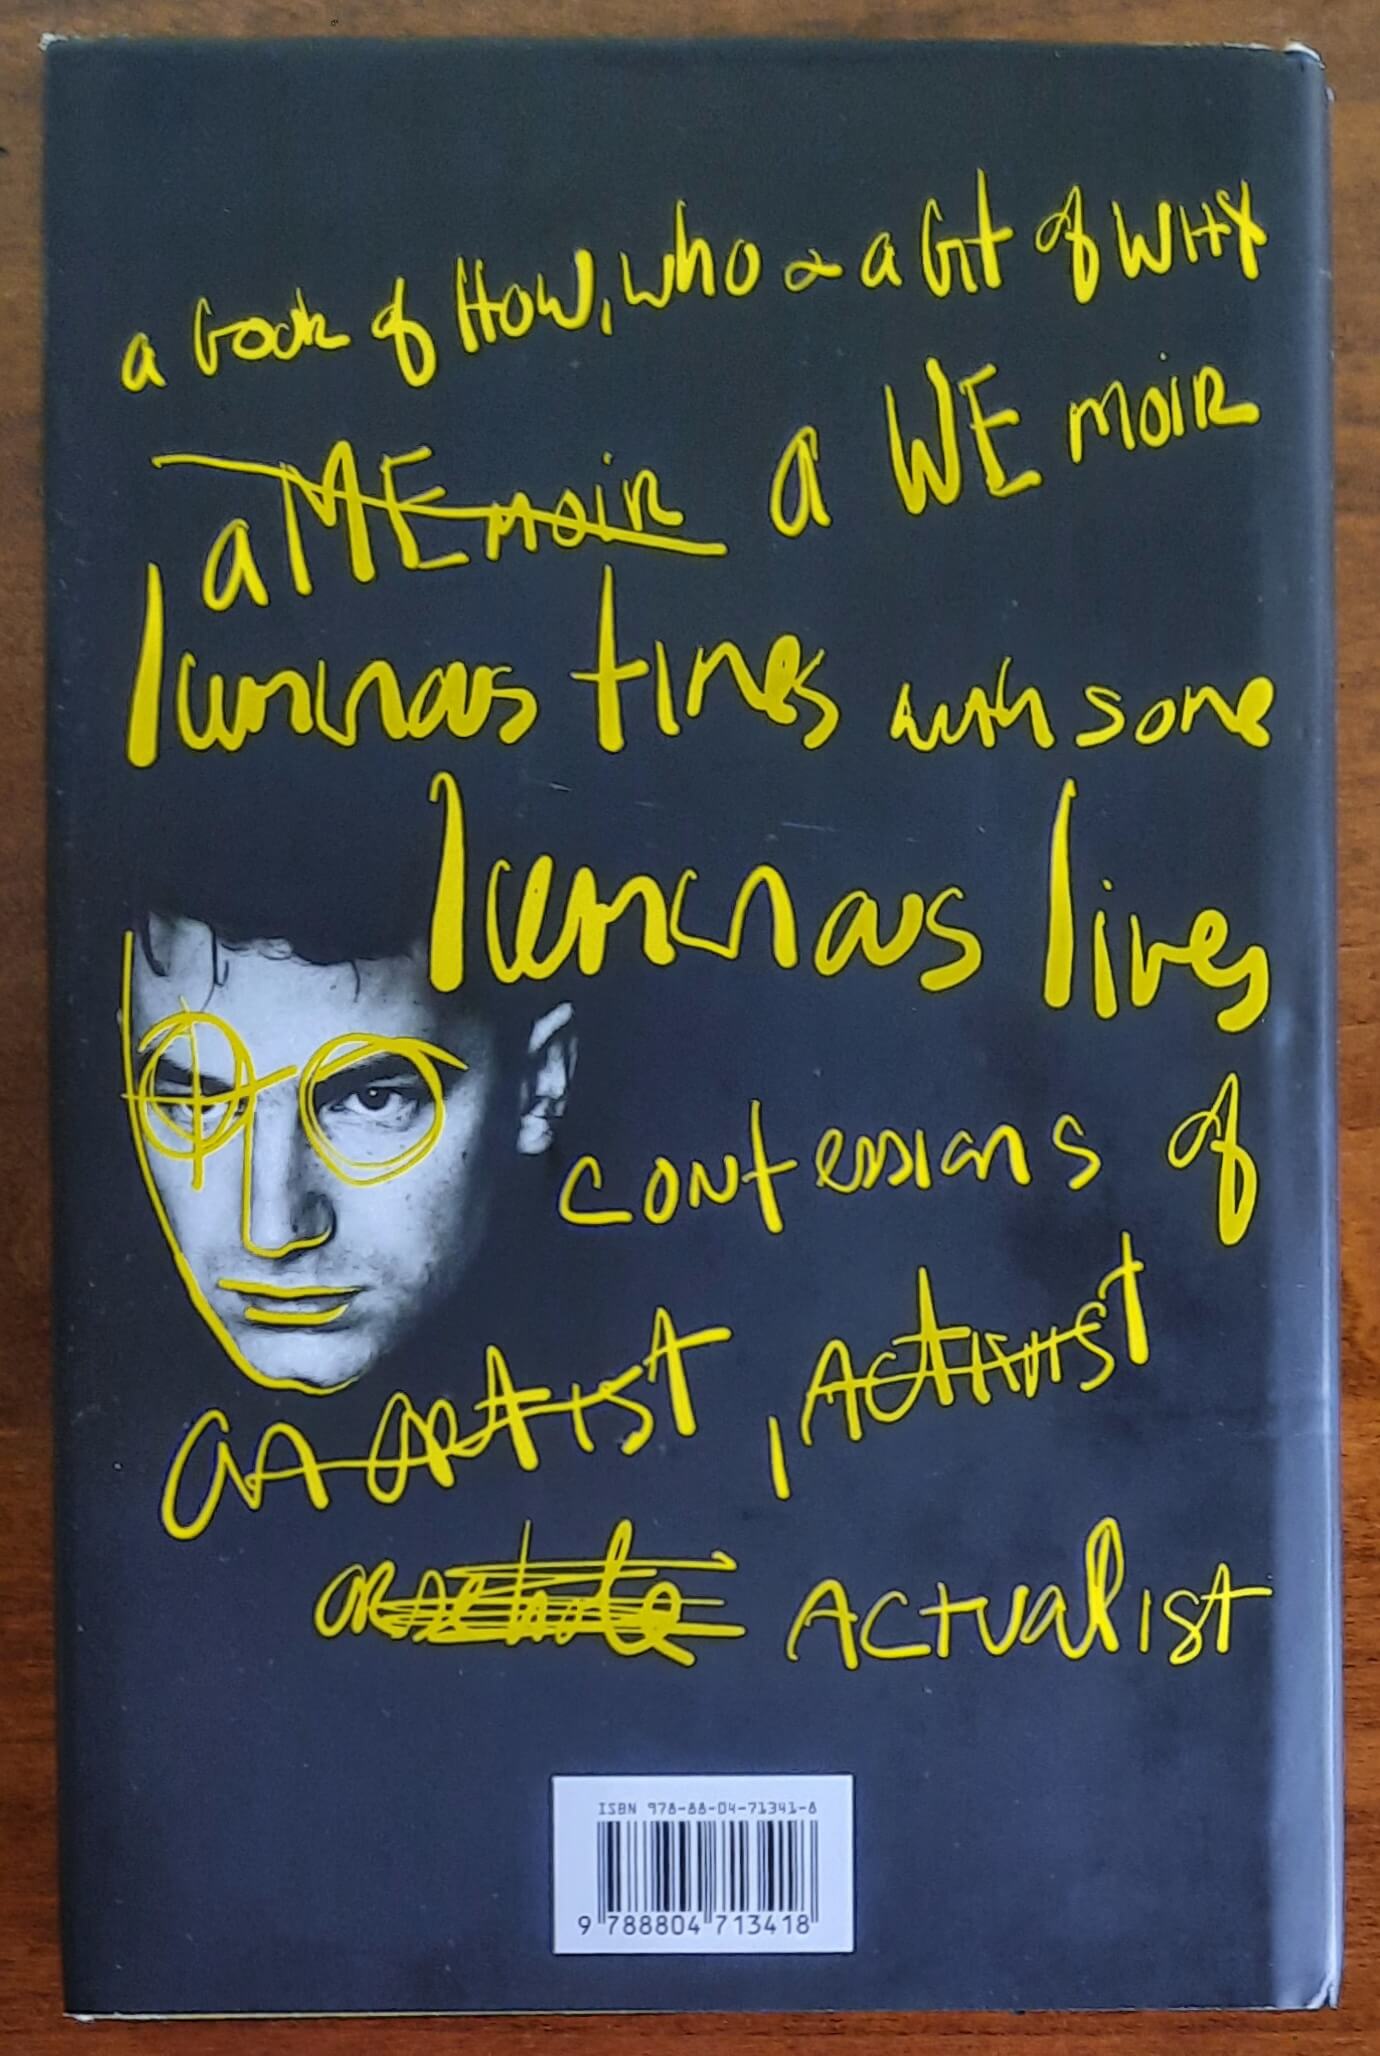 a book of HOW, who & a bit of WHY
a MEmoir a WE moir
luminous times with some
luminous lives
confessions of
an ARTIST, ACTIVIST
ACTUALIST
ISBN 978-88-04-71341-8
9 788804 713418